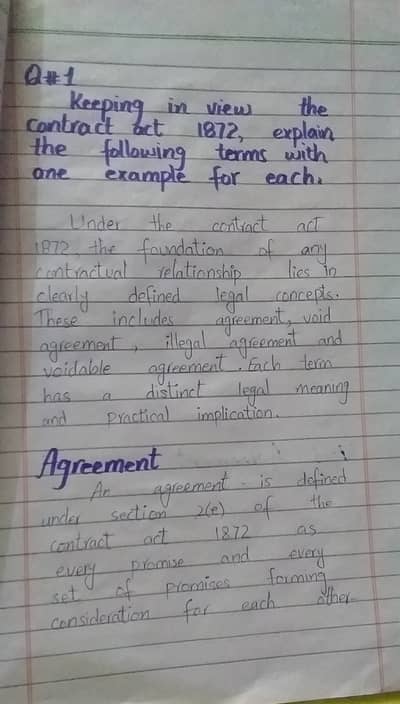 Q#1
Keeping in view the
contract act 1872, explain
the following terms with
one example for each.
Under the contract act
1872, the foundation of any
contractual relationship lies in
clearly defined legal concepts.
These includes agreement, void
agreement, illegal agreement and
voidable agreement. Each term
has a distinct legal meaning
and practical implication.
Agreement
An agreement is defined
under section 2(e) of the
contract act 1872 as
every promise and every
set of promises forming
consideration for each other.